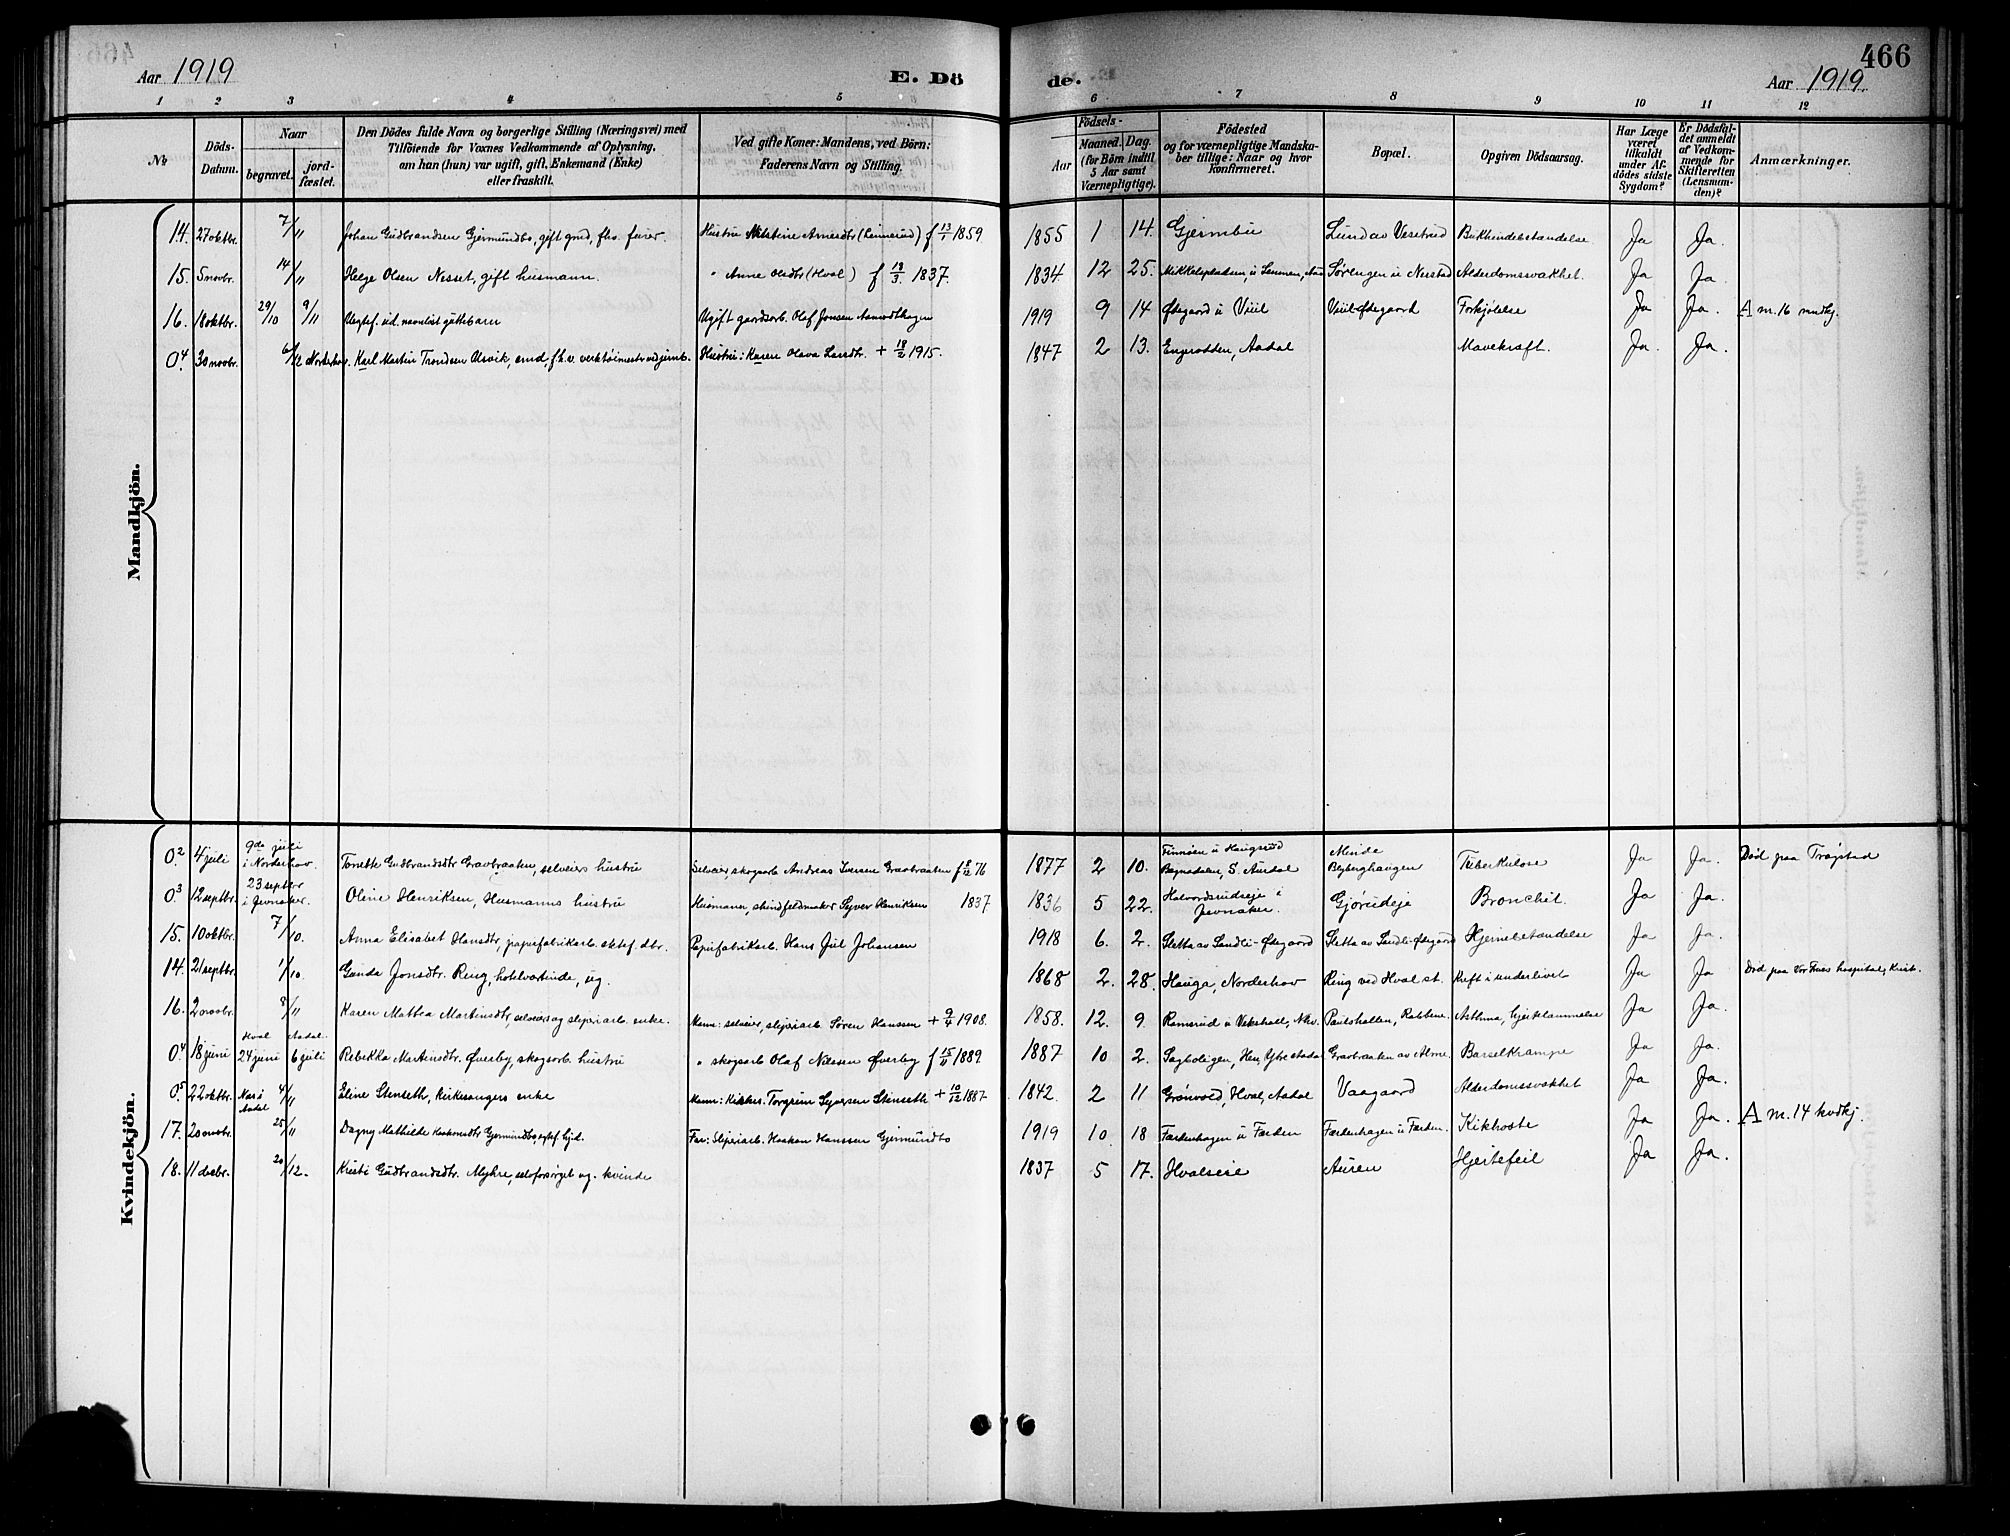 Aar 1919
E. Dö
de.
466
Aar 1919.
1 2 3 4 5 6 7 8 9 10 11 12
No
Döds-Datum.
Naar
begravet.
jord-fæstet.
Den Dödes fulde Navn og borgerlige Stilling (Næringsvei) med
Tilföiende for Voxnes Vedkommende af Oplysning,
om han (hun) var ugift, gift, Enkemand (Enke)
eller fraskilt.
Ved gifte Koner: Mandens, ved Börn:
Faderens Navn og Stilling.
Födsels-
Aar
Maaned. Dag.
(for Börn indtil
5 Aar samt
Værnepligtige).
Födested
og for værnepligtige Mandska-
ber tillige: Naar og hvor
konfirmeret.
Bopæl.
Opgiven Dödsaarsag.
Har Læge
været
tilkaldt
under Af-
dödes sidste
Sygdom?
Er Dödsfal-
det anmeldt
af Vedkom-
mende for
Skifteretten
(Lensman-
den)?
Anmærkninger.
Mandkjön.
14. 27 oktbr. 7/11 Johan Gudbrandsen Gjermundbo, gift gmd, fhv. furer. Hustru Nilstine Arnesdtr (Linnerud) f 13/1 1859. 1855 1 14. Gjermbu Lunda av Vesetrud Bukhindebetændelse Ja Ja.
15. 5 novbr. 14/11 Helge Olsen Nesset, gift husmann. " Anne Olsdtr (Hval) f 19/3 1837. 1834 12 25. Mikkelspladsen u Semmen, Aad Sørengen u Nerstad Alderdomssvakhet. Ja Ja.
16. 18 oktbr. 29/10 9/11 Uegtef. ud. navnløst guttebarn Ugift gaardsarb. Olaf Jonsen Aamodthagen 1919 9 14 Ødegaard u Viul Viul-Ødegaard Forkjølelse Ja Ja. A m. 16 mndkj.
0.4 30 novbr. 6/12 Norderhov. Karl Martin Trondsen Olsvik, emd, f.h.v. verktøimestr ved jernb. Hustru: Karen Olava Larsdtr. + 18/2 1915. 1847 2 13. Engerodden, Aadal Mavekræft. Ja. Ja.
Kvindekjön.
0.2 4 juli 9de juli i Norderhov. Tonette Gudbrandsdtr Gravbraaten, selveiers hustru Selveier, skogsarb Andreas Iversen Gravbraaten f 76 1877 2 10. Finnøen u Haugsrud Begnadalen, S. Aurdal Minde Blyberghaugen Tuberkulose Ja Ja. Død paa Trøgstad
0.3 12 septbr. 23 septbr i Jevnaker. Oline Henriksen, Husmanns hustru Husmann, skindfeldmaker Syver Henriksen 1837. 1836 5 22. Halvordsrudseje i Jevnaker. Gjørudeje Bronchit. Ja Ja.
15. 10 oktbr. 7/10. Anna Elisabet Hansdtr, papirfabrikarb. ektef. dtr. Papirfabrikarb. Hans Jul Johansen 1918 6. 2. Sletta av Sandli-Ødegaard Sletta av Sandli-Ødegaard Hjernebetændelse Ja Ja.
14. 21 septbr. 1/10. Gunda Jonsdtr. Ring, hotelværtinde, ug. 1868 2. 28. Hauga, Norderhov Ring ved Hval st. Kreft i underlivet Ja Ja Død paa Vor Frues hospital, Krist.
16. 2 novbr. 8/11 Karen Mathea Martinsdtr, selveier og sliperiarb. enke. Mann: selveier, sliperiarb. Søren Hanssen + 9/4 1908. 1858. 12. 9 Ramsrud u Veksthall, Nhv. Paulshallen, Rabbene. Asthma, hjertelammelse Ja Ja.
0.4 18 juni Hval 24 juni Aadal. 6 juli Rebekka Martinsdtr. Øverby, skogsarb. hustru " skogsarb Olaf Nilssen Øverby f 15/11 1889 1887 10 2. Sagboligen, Hen, Ytre Aadal Gravbraaten av Alme. Barselkrampe Ja Ja.
0.5 22 oktbr. Nes i Aadal 4/11 Eline Stenseth, kirkesangers enke Mann: Kirkes. Torgrim Syversen Stenseth + 10/12 1887. 1842. 2 11 Grønvold, Hval, Aadal Vaagaard Alderdomssvakhet Ja Ja.
17. 20 novbr. 25/11 Dagny Mathilde Haakonsdtr Gjermundbo, egtef. hjd. Far: Sliperiarb. Haakon Hanssen Gjermundbo 1919 10 18 Færdenhagen u Færden Færdenhagen u Færden. Kikhoste Ja Ja. A m. 14 kvdkj.
18. 11 decbr. 20/12. Kristi Gudbrandsdtr. Myhre, selvforsørget ug. kvinde 1837 5 17. Hvalseie Auren Hjertefeil Ja Ja.